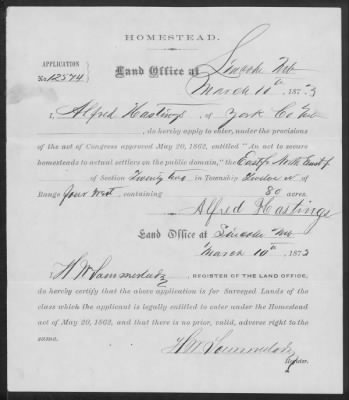 HOMESTEAD.
APPLICATION
No. 12574
Land Office at Lincoln Neb
March 10th 1873
I, Alfred Hastings, of York Co Neb
, do hereby apply to enter, under the provisions
of the act of Congress approved May 20, 1862, entitled "An act to secure
homesteads to actual settlers on the public domain," the East ½ North East ¼
of Section Twenty two in Township Twelve N of
Range four West, containing 80 acres.
Alfred Hastings
Land Office at Lincoln Neb
March 10th 1873
I, REGISTER OF THE LAND OFFICE,
do hereby certify that the above application is for Surveyed Lands of the
class which the applicant is legally entitled to enter under the Homestead
act of May 20, 1862, and that there is no prior, valid, adverse right to the
same.
Register.